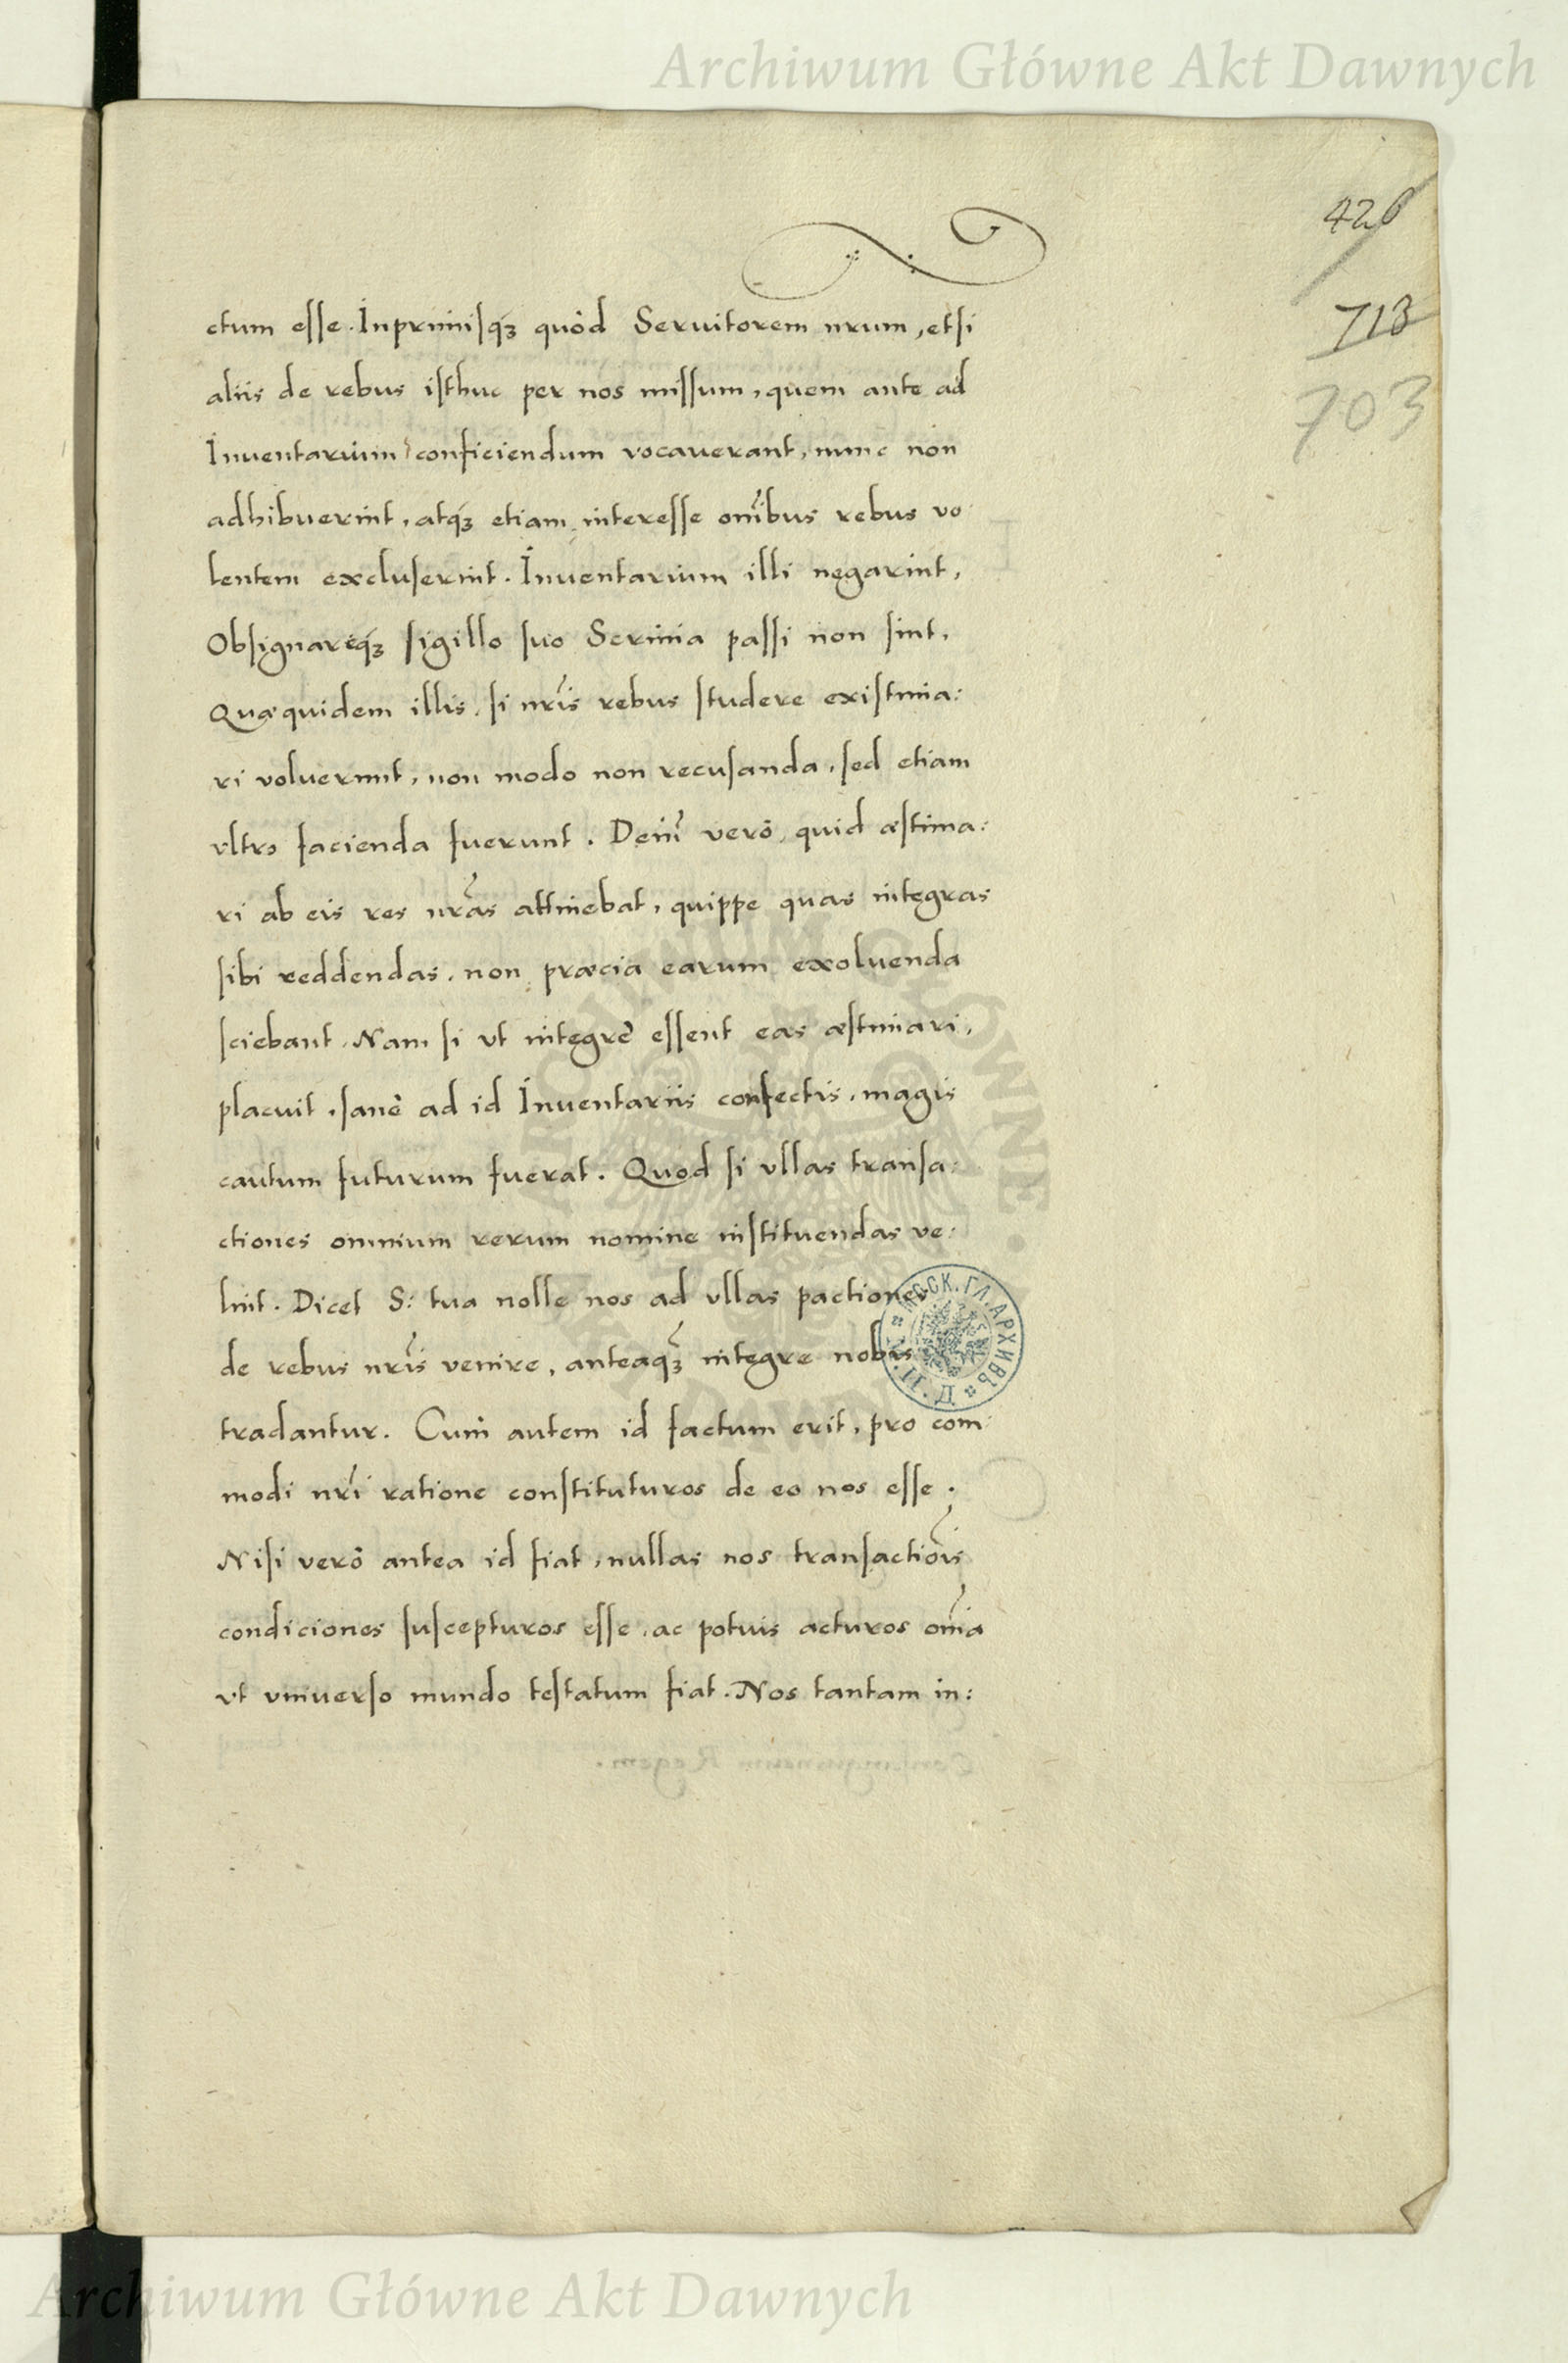 Archiwum Główne Akt Dawnych
426
713
703
ctum esse. Inprimisq́ꝫ quòd Seruitorem nrum, etsi
aliis de rebus isthuc per nos missum, quem ante ad
Inuentarium conficiendum vocauerant, nunc non
adhibuerint, atq́ꝫ etiam interesse om̃ibus rebus vo
lentem excluserint. Inuentarium illi negarint,
Obsignareq́ꝫ sigillo suo Scrinia passi non sint,
Quæquidem illis, si nr̃is rebus studere existima:
ri voluerunt, non modo non recusanda, sed etiam
vltro facienda fuerunt. Deiñ verò quid æstima:
ri ab eis res nr̃as attinebat, quippe quas integras
sibi reddendas, non præcia earum exoluenda
sciebant. Nam si vt integrè essent eas æstimari,
placuit, sanè ad id Inuentariis confectis, magis
cautum futurum fuerat. Quod si vllas transa:
ctiones omnium rerum nomine instituendas ve:
lint. Dicet S: tua nolle nos ad vllas pactiones
de rebus nr̃is venire, anteaq̃ꝫ integre nobis
tradantur. Cum autem id factum erit, pro com:
modi nr̃i ratione constituturos de eo nos esse.
Nisi verò antea id fiat, nullas nos transactiõis
condiciones suscepturos esse, ac potuis acturos om̃ia
vt vniuerso mundo testatum fiat. Nos tantam in:
МОСК. ГЛ. АРХИВЪ
Archiwum Główne Akt Dawnych